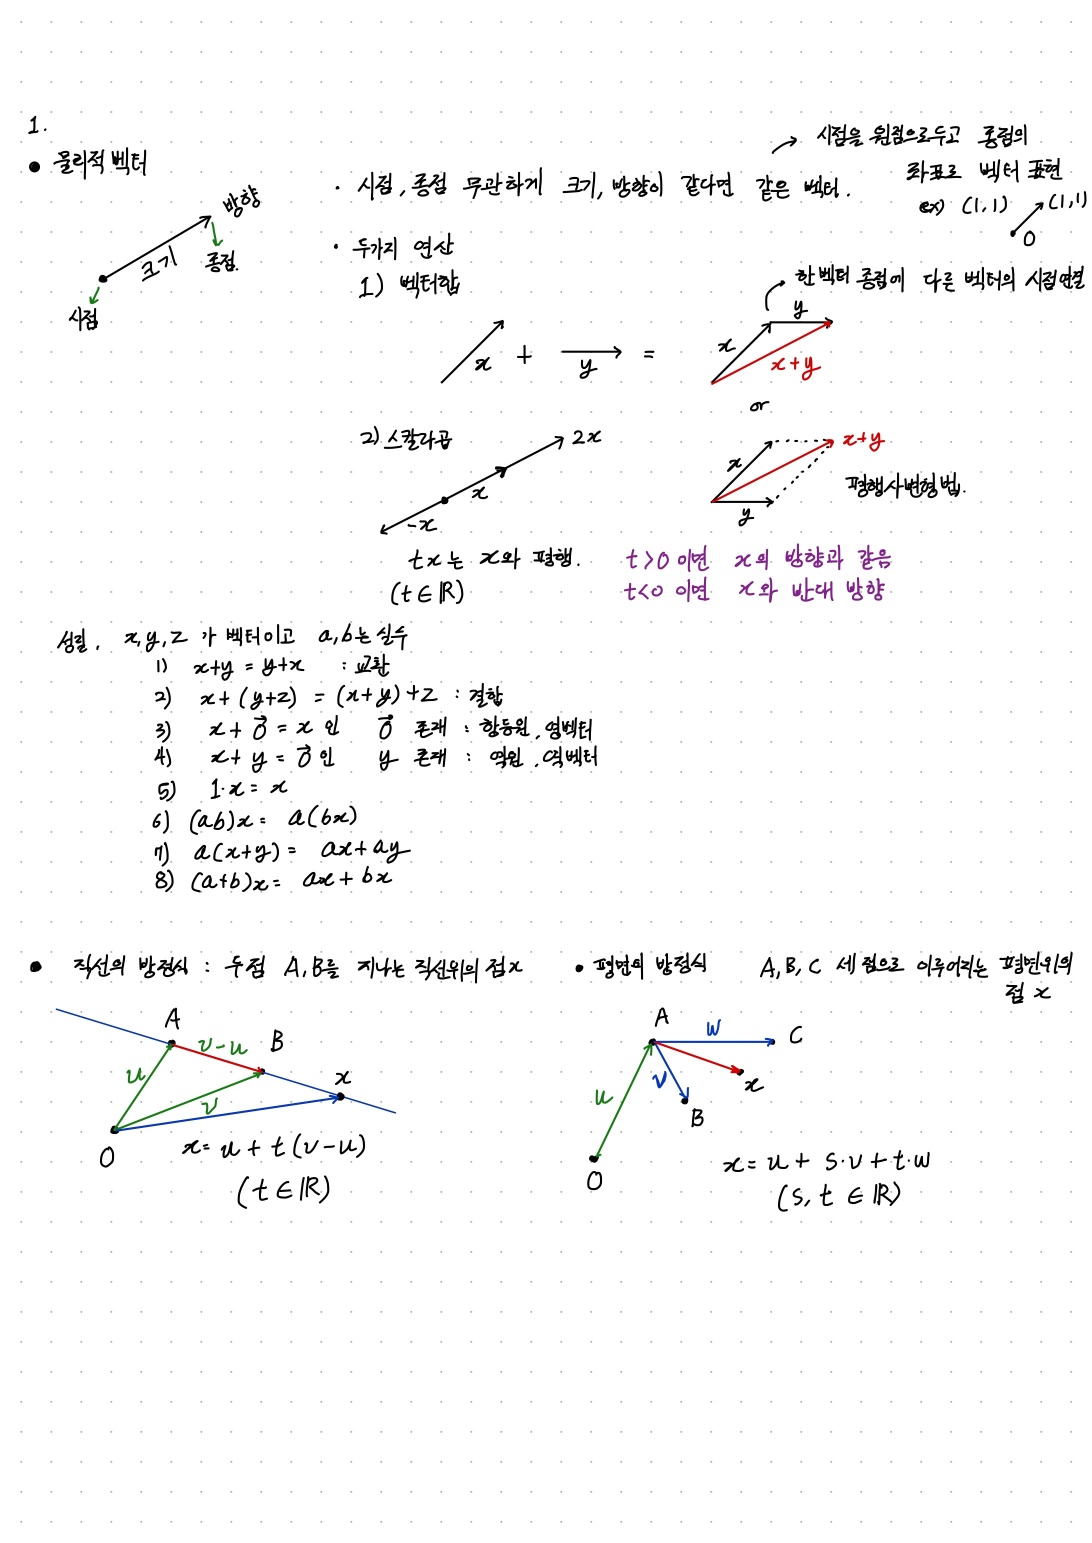 1.
● 물리적 벡터
방향
크기
종점.
시점
· 시점, 종점 무관하게 크기, 방향이 같다면 같은 벡터.
시점을 원점으로두고 종점의
좌표로 벡터 표현
ex) (1,1)
(1,1)
O
· 두가지 연산
1) 벡터합
한 벡터 종점에 다른 벡터의 시점 연결
x + y =
x
y
x+y
or
x
y
x+y
평행사변형법.
2) 스칼라곱
2x
x
-x
tx는 x와 평행.
(t ∈ ℝ)
t>0 이면 x의 방향과 같음
t<0 이면 x와 반대 방향
성질. x, y, z 가 벡터이고 a, b는 실수
1) x+y = y+x : 교환
2) x + (y+z) = (x+y)+z : 결합
3) x + 0⃗ = x 인 0⃗ 존재 : 항등원, 영벡터
4) x + y = 0⃗ 인 y 존재 : 역원, 역벡터
5) 1·x = x
6) (ab)x = a(bx)
7) a(x+y) = ax + ay
8) (a+b)x = ax + bx
● 직선의 방정식 : 두점 A, B를 지나는 직선위의 점 x
A
v-u
B
x
u
v
O
x = u + t(v-u)
(t ∈ ℝ)
● 평면의 방정식 A, B, C 세 점으로 이루어지는 평면위의
점 x
A
w
C
x
v
B
u
O
x = u + s·v + t·w
(s, t ∈ ℝ)